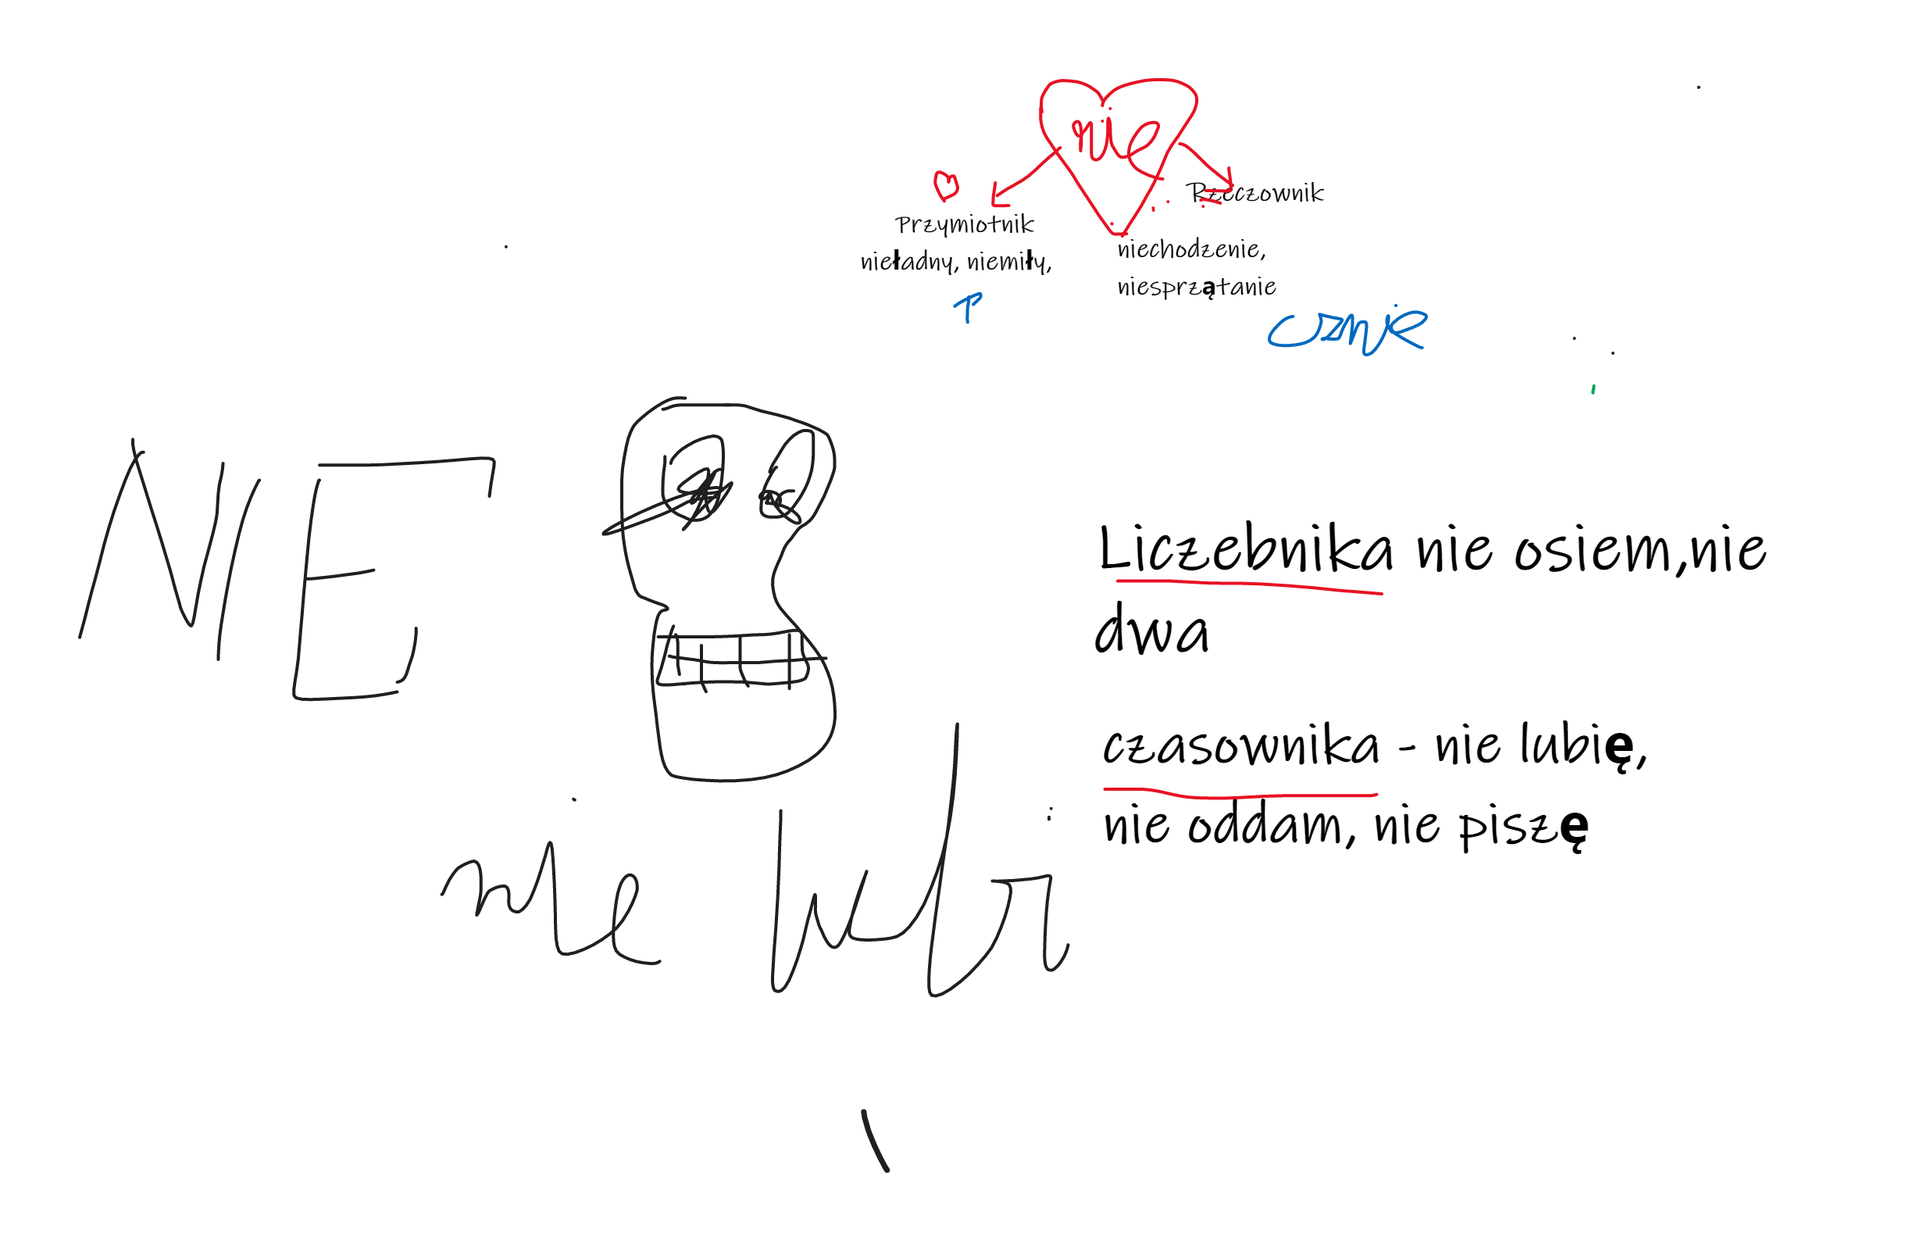 nie
Rzeczownik
Przymiotnik
niechodzenie,
nieładny, niemiły,
niesprzątanie
NIE
Liczebnika nie osiem,nie
dwa
czasownika - nie lubię,
nie oddam, nie piszę
nie lubi